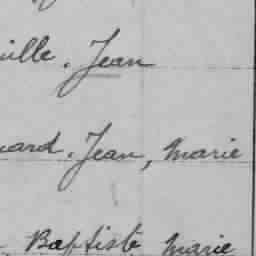 ville. Jean
nard. Jean, Marie
Baptiste Marie